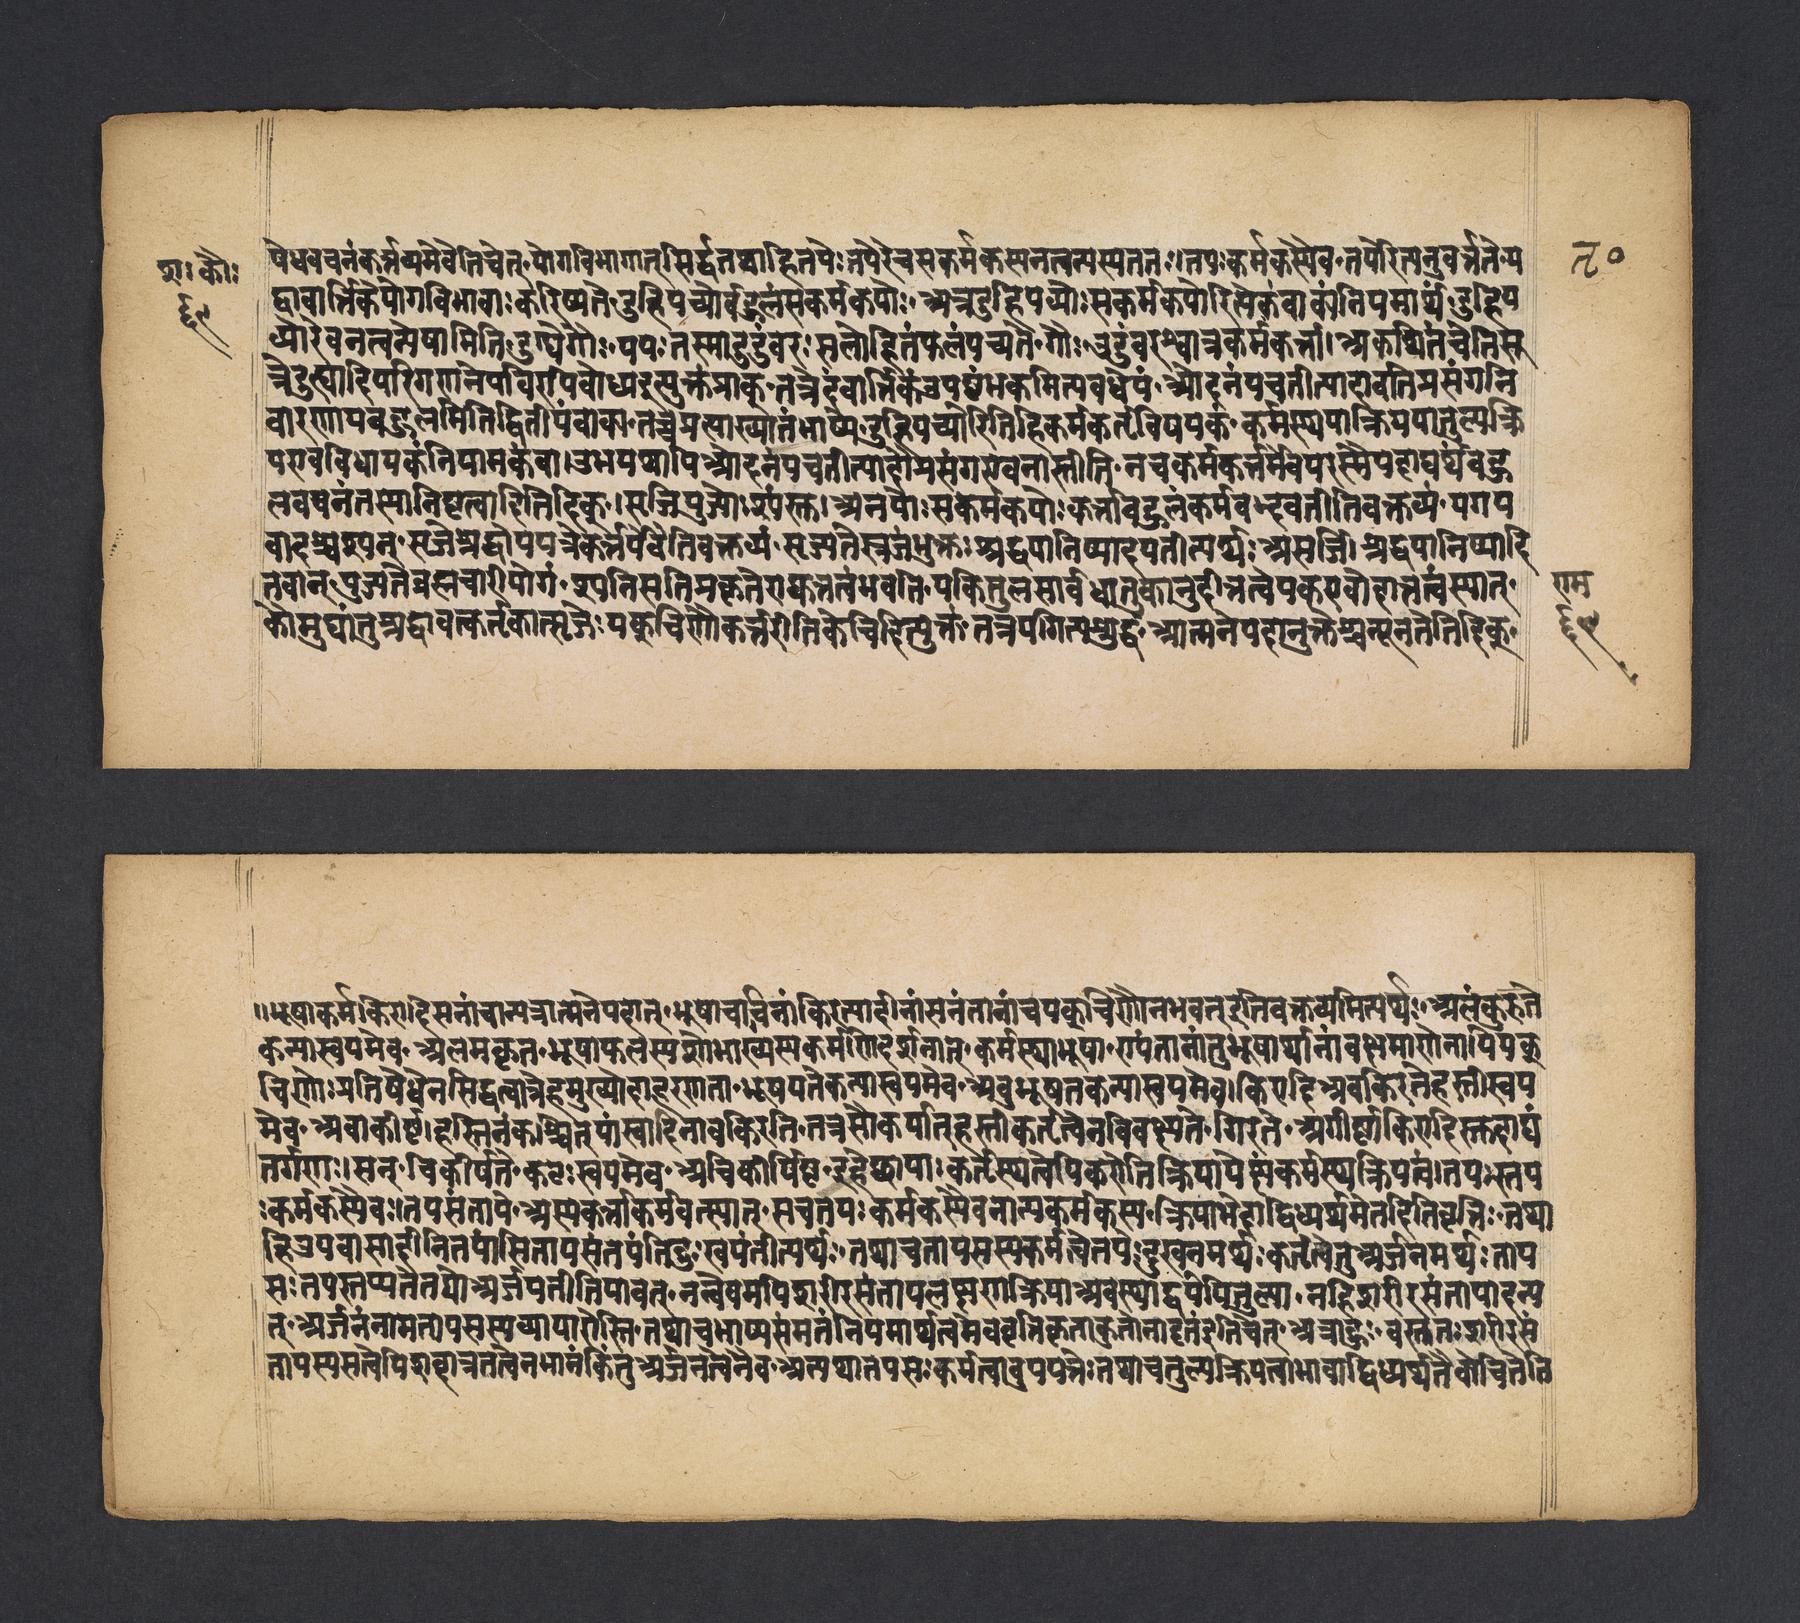 श॰ कौ॰
६९
षेधवचनंकर्त्तव्यमेवेतिचेत्-योगविभागात्सिद्धं तद्यथाहितपेः तपेरेवसकर्मकस्यनत्वन्यस्यततः।तपःकर्मकस्यैव-तपेरित्यनुवर्त्तते-य
द्वावार्त्तिकेयोगविभावाःकरिष्यते-दुहिपच्योर्बहुलंसकर्मकयोः-अत्रदुहिपच्योःसकर्मकयोरित्येकंवाक्यंतियमार्थं-दुहिप
च्योरेवनत्वन्येषामिति-दुग्धेगौः-पयः तस्मादुदुंबरःसलोहितंफलंपच्यते-गौः-उदुंबरश्चात्रकर्मकर्त्ता।अकथितंचेतिसू
त्रेदुह्यादिपरिगणनेपचिरपिबोध्यइत्युक्तंप्राक्-तत्रेदंवार्त्तिकंउपष्टंभकमित्यवधेयं-ओदनंपचतीत्यादावतिप्रसंगनि
वारणायबहुलमितिद्वितीयंवाक्यं-तच्चप्रत्याख्यातंभाष्ये-दुहिपच्योरितिहिकर्मकर्तृविषयकं-कर्मस्थयाक्रिययातुल्यक्रि
यएवविधायकंनियामकंवा।उभयथापिओदनंपचतीत्यादौप्रसंगएवनास्तीति-नचकर्मकर्त्तर्येवपरस्मैपदाद्यर्थंबहु
लवचनंतस्यानिष्टत्वादितिदिक्।सृजियुज्योः श्यंस्तु।अनयोःसकर्मकयोःकर्त्ताबहुलंकर्मवद्भवतीतिवक्तव्यं-यगप
वादश्चश्यन्-सृजेःश्रद्धोपपन्नेकर्त्तर्येवेतिवक्तव्यं-सृज्यतेस्रजंभक्तः-श्रद्धयानिष्पादयतीत्यर्थः-असर्जि।श्रद्धयानिष्पादि
तवान्-युज्यतेब्रह्मचारीयोगं-श्यनिसतिप्रकृतेराद्युदात्तत्वंभवति-यकितुलसार्वधातुकानुदात्तत्वेयकएवोदात्तत्वंस्यात्-
कौमुद्यांतुश्रद्धावत्कर्तृकात्सृजेः-यक्चिणौकर्त्तरीतिकेचिदित्युक्तं-तत्रयगित्यशुद्धं-आत्मनेपदानुक्तेश्चन्यूनतेतिदिक्-
राम
६९
७०
॥भूषाकर्मकिरादिसनांचान्यत्रात्मनेपदात्-भूषावाचिनांकिरत्यादीनांसनंतानांचयक्चिणौनभवतइतिवक्तव्यमित्यर्थः-अलंकुरुते
कन्यास्वयमेव-अलमकृत-भूषाफलस्यशोभाख्यस्यकर्मणिदर्शनात्-कर्मस्थाभूषा-ण्यंतानांतुभूषार्थानांवक्ष्यमाणेनापियक्
चिणोःप्रतिषेधेनसिद्धत्वान्नेहमुख्योदाहरणता-भूषयतेकन्यास्वयमेव-अबुभूषतकन्यास्वयमेव।किरादि-अवकिरतेहस्तीस्वय
मेव-अवाकीर्ष्ट।हस्तिनंकश्चित्पांस्वादिनावकिरति-तत्रसौकर्यात्हस्तीकर्तृत्वेनविवक्ष्यते-गिरते-अगीर्ष्ट।किरादिस्तुदाद्यं
तर्गणः।सन्-चिकीर्षते-कटःस्वयमेव-अचिकीर्षिष्ट-इहेच्छायाःकर्तृस्थत्वेपिकरोतिक्रियापेक्षंकर्मस्थक्रियत्वं।तपस्तप
ःकर्मकस्यैवः।तपसंतापे-अस्यकर्त्ताकर्मवत्स्यात्-सचतपःकर्मकस्यैवनान्यकर्मकस्य-क्रियाभेदाद्विध्यर्थमेतदितिवृत्तिः-तथा
हिउपवासादीनितपांसितापसंतपंतिदुःखयंतीत्यर्थः-तथाचतापसस्यकर्मत्वेतपःदुःखनमर्थः-कर्तृत्वेतुअर्जनमर्थः-ताप
सःतपस्तप्यतेतपोअर्जयतीतियावत्-नन्वेवमपिशरीरसंतापलक्षणाक्रियाअवस्थाद्वयेपितुल्या-नहिशरीरसंतापादन्य
त्-अर्जनंनामतापसस्यव्यापारोस्ति-तथाचभाष्यसंमतंनियमार्थत्वमेववृत्तिकृताकुतोनादृतंइतिचेत्-अत्राहुः-वस्तुतःशरीरसं
तापस्यसत्वेपिशब्दान्नतत्वेनभानंकिंतुअर्जनत्वेनैव-अन्यथातपसःकर्मत्वानुपपत्तेः-तथाचतुल्यक्रियत्वाभावाद्विध्यर्थतैवोचितेति